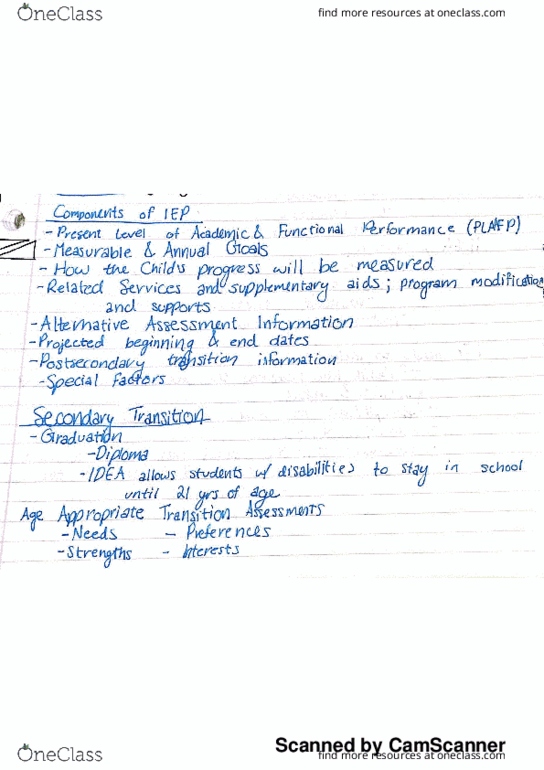 OneClass
find more resources at oneclass.com
Components of IEP
- Present Level of Academic & Functional Performance (PLAFP)
- Measurable & Annual Goals
- How the Child's progress will be measured
- Related Services and supplementary aids; program modification
and supports
- Alternative Assessment Information
- Projected beginning & end dates
- Postsecondary transition information
- Special Factors
Secondary Transition
- Graduation
- Diploma
- IDEA allows students w/ disabilities to stay in school
until 21 yrs of age
Age Appropriate Transition Assessments
- Needs - Preferences
- Strengths - Interests
Scanned by CamScanner
OneClass
find more resources at oneclass.com